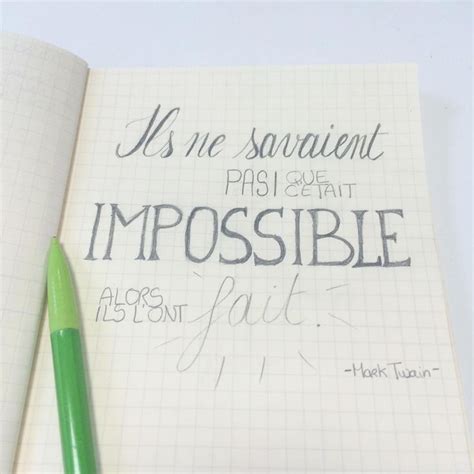 Ils ne savaient
PAS QUE
C'ÉTAIT
IMPOSSIBLE
ALORS
ILS L'ONT fait.
-Mark Twain-